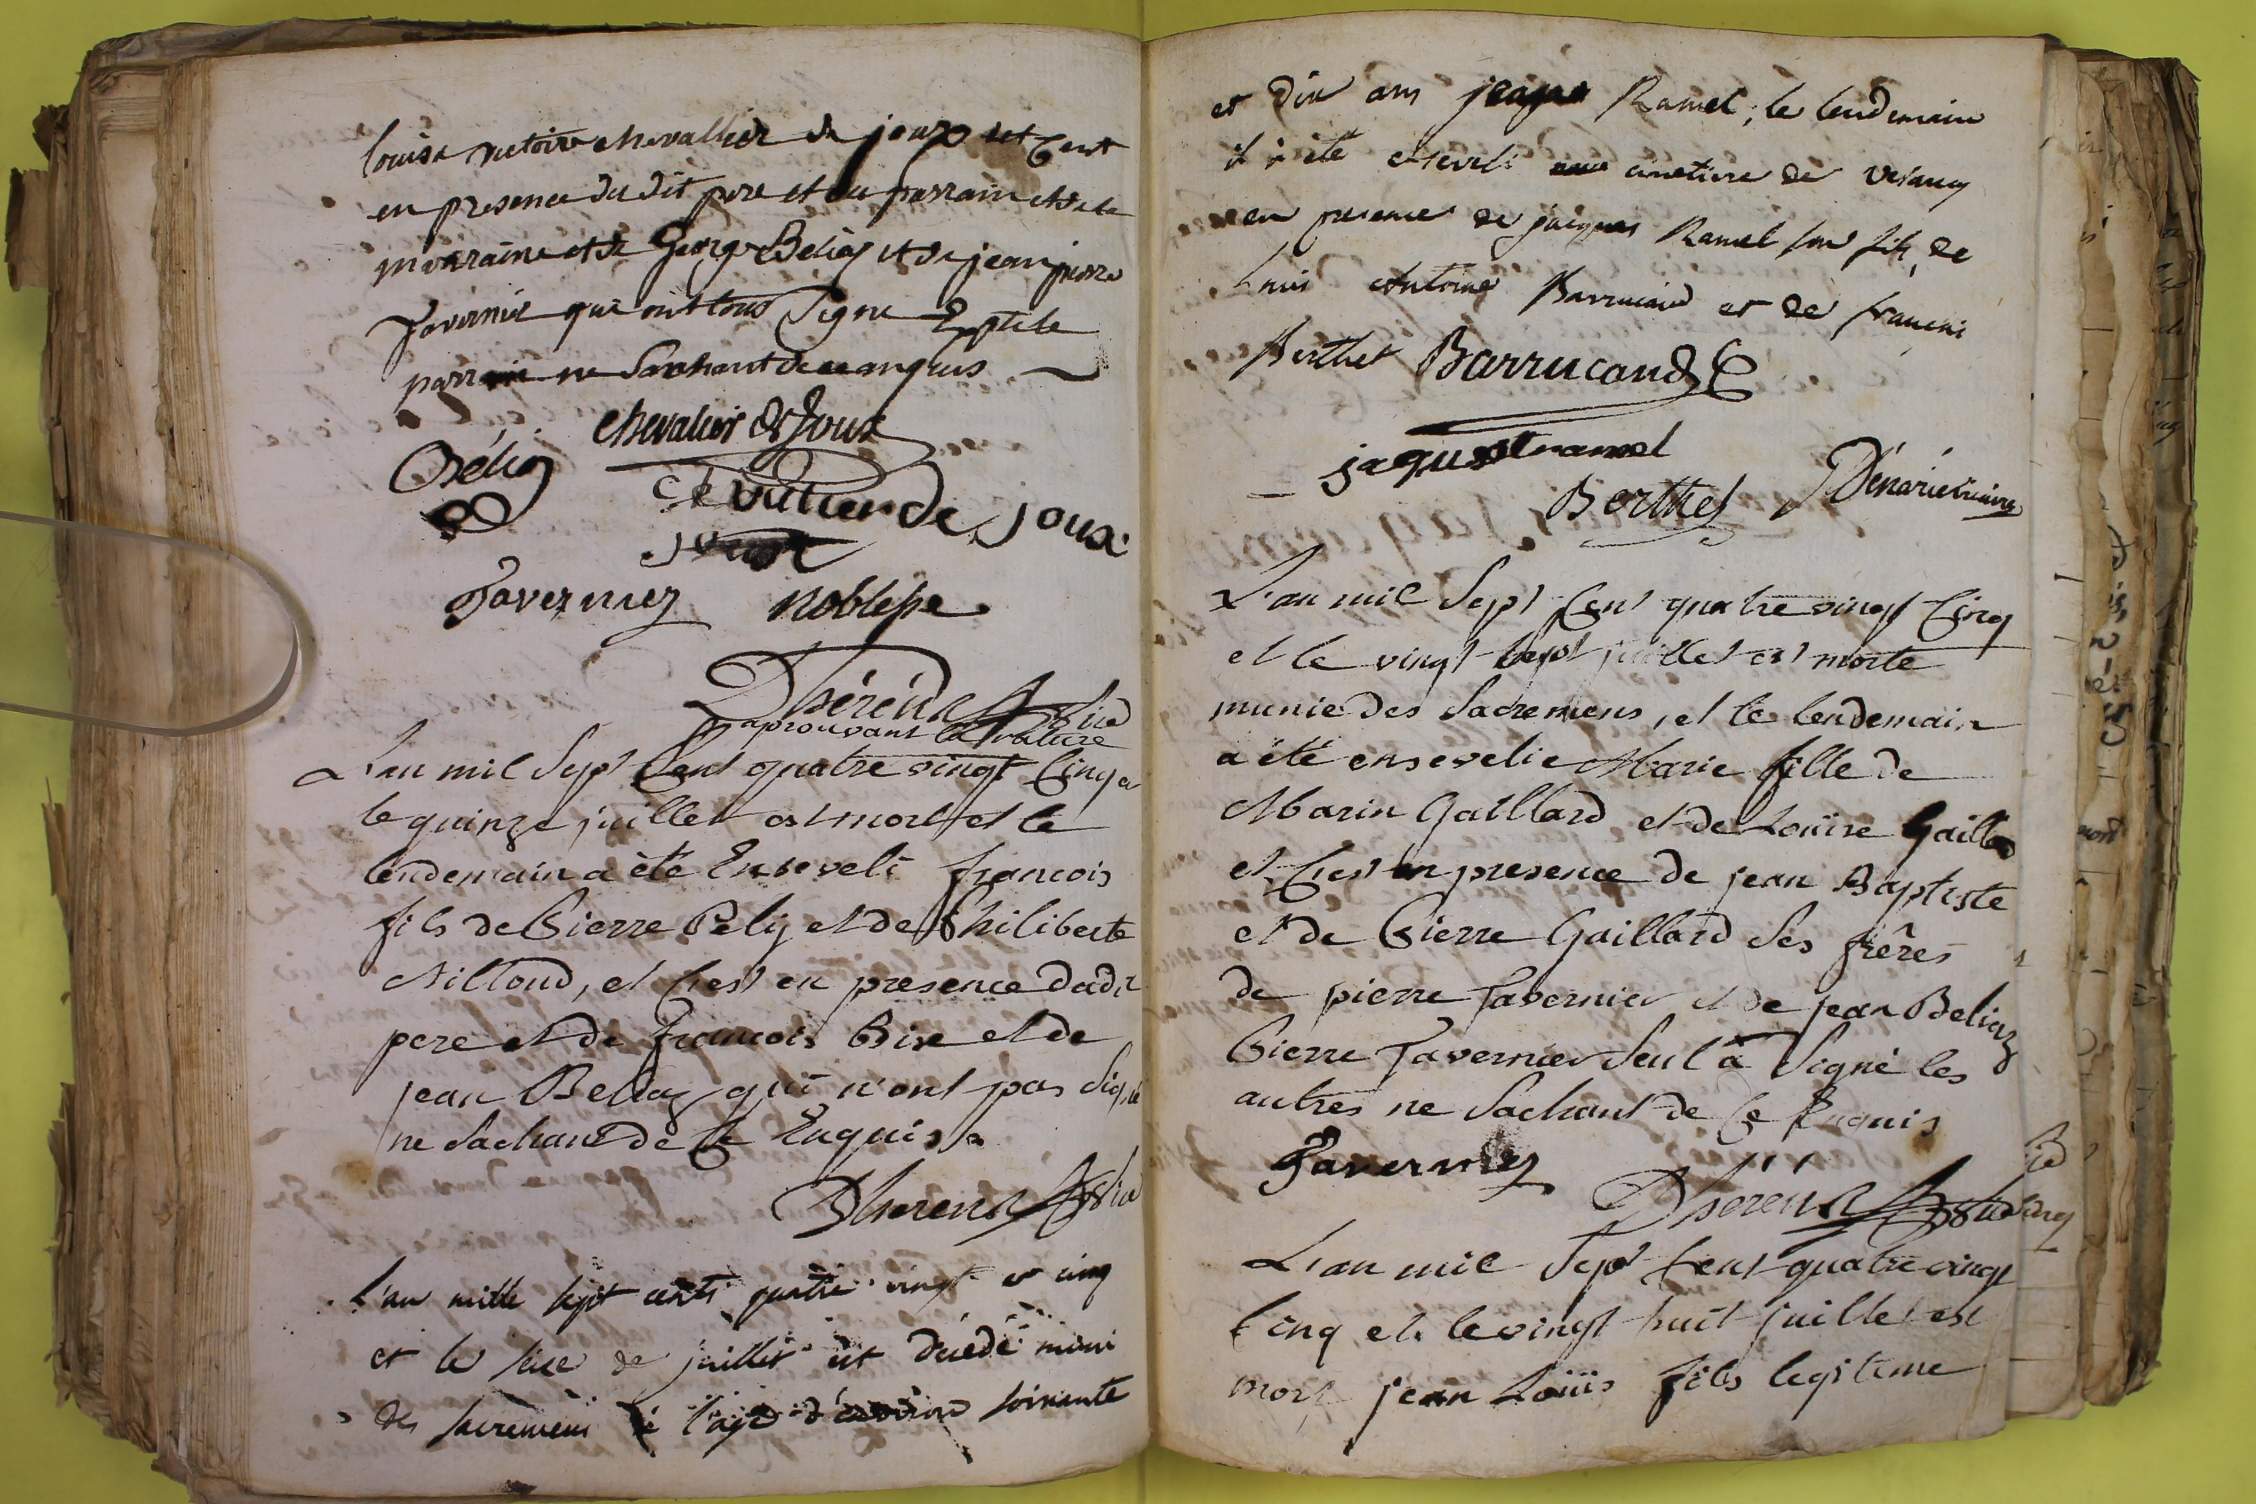 louise victoire chevallier de joux et C'est
en presence du dit pere et du parrain et de la
marraine et de George Béliaz et de jean pierre
Tavernier qui ont tous Signe Excepté le
parrain ne Sachant de ce enquis
chevalier de Joux
Béliaz
vuilier de joux
joux
Tavernier noblesse
D hérens Vic
aprouvant la rature
L'an mil Sept Cent quatre vingt Cinq et
le quinze juillet est mort et le
lendemain a été Enseveli françois
fils de Pierre Pely et de Philiberte
Nilloud, et C'est en presence dudit
pere et de françois Bise et de
jean Beliaz qui n'ont pas Signé
ne Sachant de Ce Enquis
Dherens Vic
L'an mille sept cents quatre vingt et cinq
et le seise de juillet est décédé muni
des sacremens à l'age d'environ soixante
et dix ans Ramel, le lendemain
il a été enseveli au cimetiere de
en presence de jacques Ramel son fils, de
Louis Antoine Barrucand et de françois
Berthet Barrucand
jaques ramel
Berthet Dénarié vicaire
L'an mil Sept Cent quatre vingt Cinq
et le vingt Sept juillet est morte
munie des Sacremens, et le lendemain
a été ensevelie Marie fille de
Marin Gaillard et de Loüise Gaillard
et C'est en presence de jean Baptiste
et de Pierre Gaillard Ses frêres
de pierre Tavernier et de jean Beliaz
Pierre Tavernier Seul à Signé les
autres ne Sachant de Ce Enquis
Tavernier
D hérens Vic
L'an mil Sept Cent quatre vingt
Cinq et le vingt huit juillet est
mort jean Loüis fils legitime